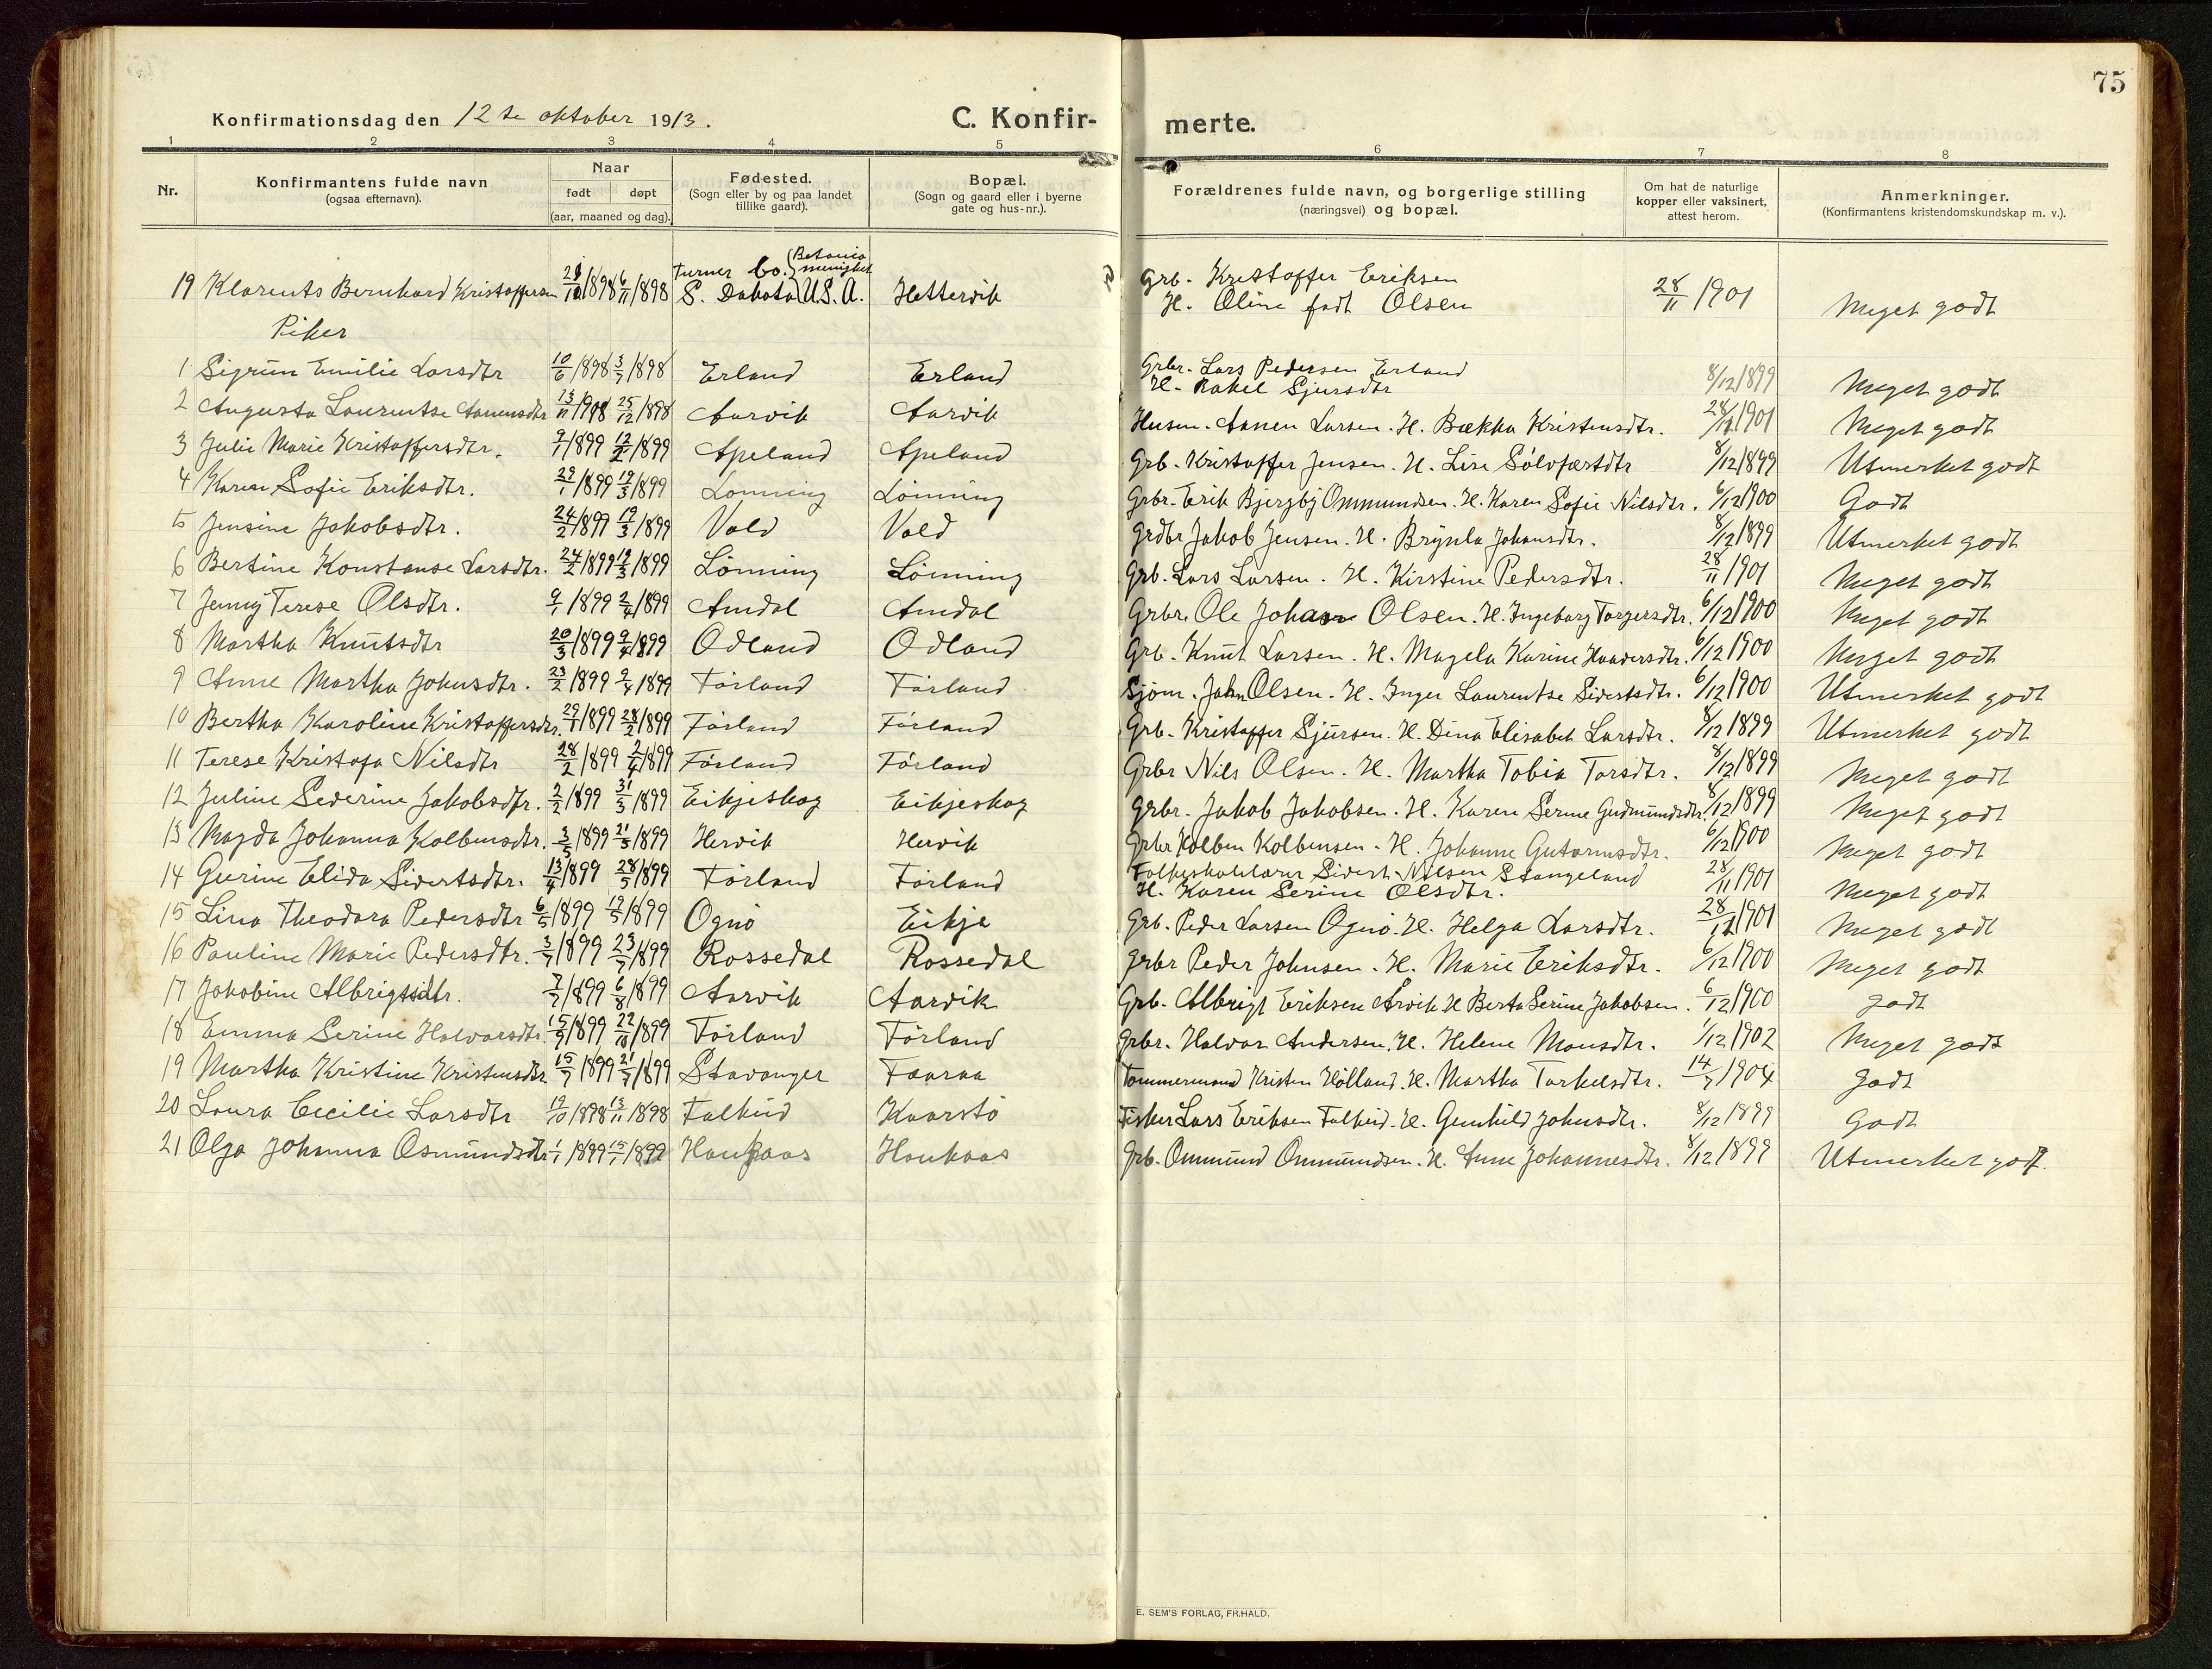 75
Konfirmationsdag den 12te oktober 1913.
C. Konfir-
merte.
1 2 3 4 5 6 7 8
Nr.
Konfirmantens fulde navn
(ogsaa efternavn).
Naar
født døpt
(aar, maaned og dag).
Fødested.
(Sogn eller by og paa landet
tillike gaard).
Bopæl.
(Sogn og gaard eller i byerne
gate og hus-nr.).
Forældrenes fulde navn, og borgerlige stilling
(næringsvei) og bopæl.
Om hat de naturlige
kopper eller vaksinert,
attest herom.
Anmerkninger.
(Konfirmantens kristendomskundskap m. v.).
Turner Co. (Betania menighet
Grb. Kristoffer Eriksen
19 Klarents Bernhard Kristoffersen /1898 6/11/1898 S. Dakota) U.S.A. Hettervik H. Oline født Olsen 28/11/1901 Meget godt
Piker
Grbr. Lars Pedersen Erland
1 Sigrun Emilie Larsdtr 10/6/1898 3/7/1898 Erland Erland H. Rakel Sjursdtr 8/12/1899 Meget godt
2 Augusta Laurentse Aanensdtr 13/11/1898 25/12/1898 Aarvik Aarvik Husm. Aanen Larsen. H. Bækka Kristensdtr. 28/11/1901 Meget godt
3 Julie Marie Kristoffersdtr. 9/1/1899 12/2/1899 Apeland Apeland Grb. Kristoffer Jensen. H. Lise Sölvfæstdtr 8/12/1899 Utmerket godt
4 Karen Sofie Eriksdtr. 29/1/1899 19/3/1899 Lönning Lönning Grbr. Erik Bjergby Ommundsen. H. Karen Sofie Nilsdtr. 6/12/1900 Godt
5 Jensine Jakobsdtr. 24/2/1899 19/3/1899 Vold Vold Grdbr Jakob Jensen. H. Brynla Johansdtr. 8/12/1899 Utmerket godt
6 Bertine Konstanse Larsdtr. 24/2/1899 19/3/1899 Lönning Lönning Grb. Lars Larsen. H. Kirstine Pedersdtr. 28/11/1901 Meget godt
7 Jenny Terese Olsdtr. 9/1/1899 2/4/1899 Amdal Amdal Grbr. Ole Johan Olsen. H. Ingeborg Torgersdtr. 6/12/1900 Meget godt
8 Martha Knutsdtr 20/3/1899 9/4/1899 Odland Odland Grb. Knut Larsen. H. Magela Karine Haaversdtr. 6/12/1900 Meget godt
9 Anne Martha Johnsdtr. 23/2/1899 9/4/1899 Förland Förland Sjöm. John Olsen. H. Inger Laurentse Sivertsdtr. 6/12/1900 Utmerket godt
10 Bertha Karoline Kristoffersdtr. 29/1/1899 28/2/1899 Förland Förland Grb. Kristoffer Sjursen. H. Dina Elisabet Larsdtr. 8/12/1899 Utmerket godt
11 Terese Kristofa Nilsdtr 28/2/1899 2/4/1899 Förland Förland Grbr Nils Olsen. H. Martha Tobia Torsdtr. 8/12/1899 Meget godt
12 Juline Severine Jakobsdtr. 2/2/1899 31/3/1899 Eikjeskog Eikjeskog Grbr. Jakob Jakobsen. H. Karen Serine Gudmundsdtr. 8/12/1899 Meget godt
13 Magda Johanna Kolbensdtr. 3/5/1899 21/5/1899 Hervik Hervik Grbr Kolben Kolbensen. H. Johanne Gutormsdtr. 6/12/1900 Meget godt
Folkeskolelærer Sivert Nilsen Stangeland
14 Gurine Elida Sivertsdtr. 13/4/1899 28/5/1899 Förland Förland H. Karen Serine Olsdtr. 28/11/1901 Meget godt
15 Lina Theodora Pedersdtr 6/5/1899 19/5/1899 Ognö Eikje Grb. Peder Larsen Ognö. H. Helga Larsdtr. 28/11/1901 Meget godt
16 Pauline Marie Pedersdtr. 3/7/1899 23/7/1899 Rossedal Rossedal Grbr Peder Johnsen. H. Marie Eriksdtr. 6/12/1900 Meget godt
17 Jakobine Albrigtsdtr. 7/7/1899 6/8/1899 Aarvik Aarvik Grb. Albrigt Eriksen Arvik H Berta Serine Jakobsen. 6/12/1900 godt
18 Emma Serine Halvorsdtr 15/9/1899 22/10/1899 Förland Förland Grbr. Halvor Andersen. H. Helene Monsdtr. 1/12/1902 Meget godt
19 Martha Kristine Kristensdtr 15/7/1899 21/7/1899 Stavanger Faaraa Tömmermand Kristen Hölland. H. Martha Torkelsdtr. 14/7/1904 Godt
20 Laura Cecilie Larsdtr 19/10/1898 13/11/1898 Falkeid Kaarstö Fisker Lars Eriksen Falkeid. H. Gunhild Johnsdtr. 8/12/1899 Godt
21 Olga Johanna Osmundsdtr 1/1/1899 15/1/1899 Haukaas Haukaas Grb. Ommund Ommundsen. H. Anne Johannesdtr. 8/12/1899 Utmerket godt.
E. SEM'S FORLAG, FR.HALD.